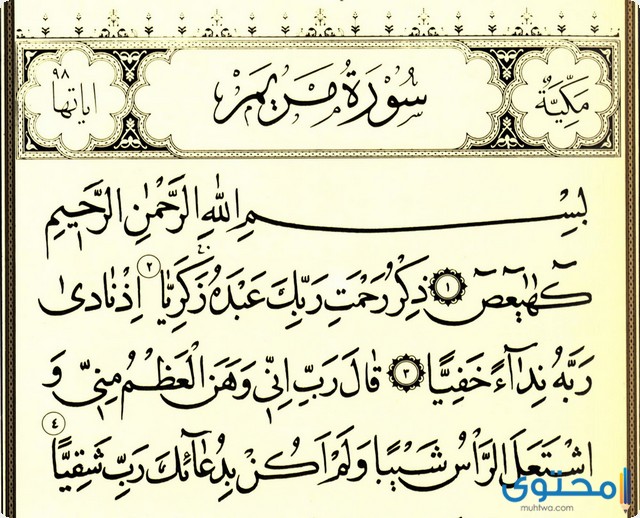 مَكِّيَّةٌ
سُورَةُ مَرْيَمَ
اياتها ٩٨
بِسْمِ اللهِ الرَّحْمٰنِ الرَّحٖيمِ
كٓهٰيٰعٓصٓ ١ ذِكْرُ رَحْمَتِ رَبِّكَ عَبْدَهُ زَكَرِيَّا ٢ اِذْ نَادٰى
رَبَّهُ نِدَٓاءً خَفِيًّا ٣ قَالَ رَبِّ اِنّٖى وَهَنَ الْعَظْمُ مِنّٖى وَ
اشْتَعَلَ الرَّاْسُ شَيْبًا وَلَمْ اَكُنْ بِدُعَٓائِكَ رَبِّ شَقِيًّا ٤
محتوى
muhtwa.com